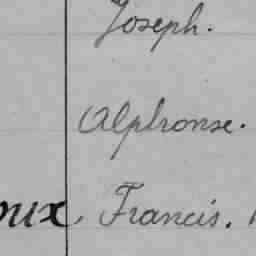 Joseph.
Alphonse.
oux, Francis.